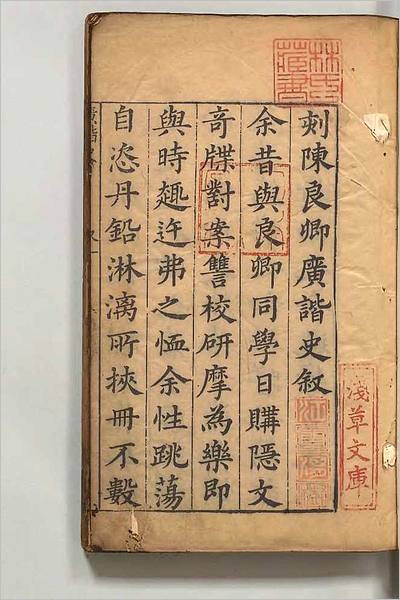 刺陳良卿廣諧史叙
余昔與良卿同學日購隱文
奇牒對案讐校研摩為樂即
與時趨迕弗之恤余性跳蕩
自恣丹鉛淋漓所挾冊不數
林氏藏書
淺草文庫